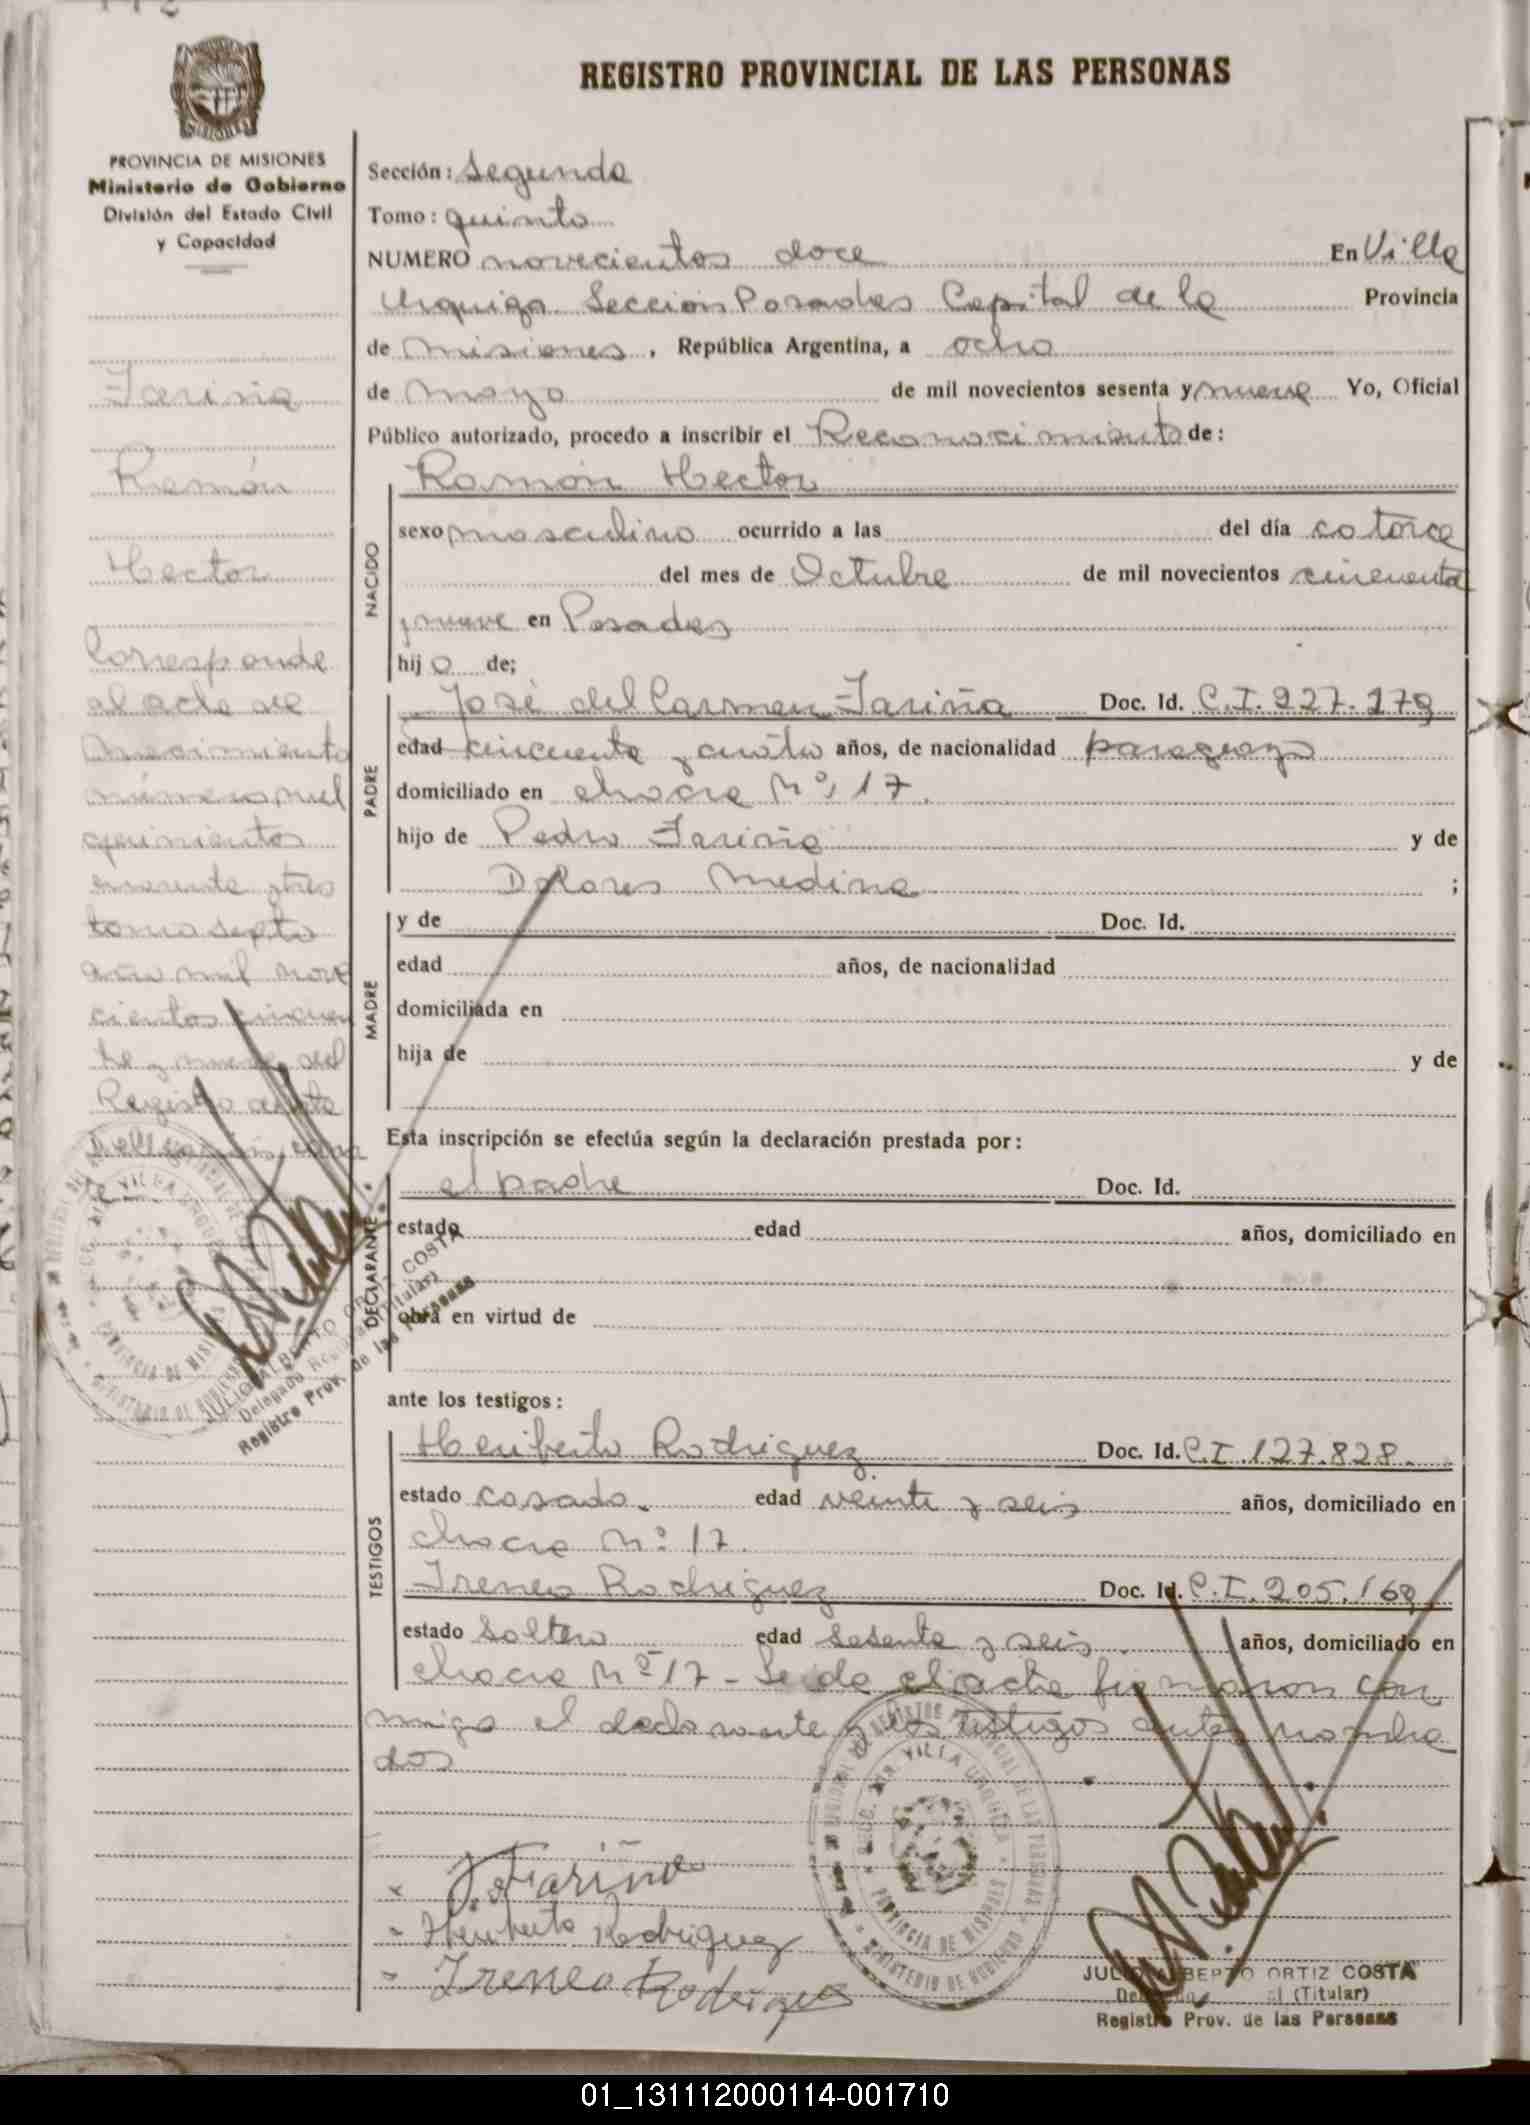 REGISTRO PROVINCIAL DE LAS PERSONAS
PROVINCIA DE MISIONES
Ministerio de Gobierno
División del Estado Civil
y Capacidad
Fariña
Ramón
Hector
Corresponde
al acta de
nacimiento
número mil
quinientos
cuarenta y tres
tomo septo
año mil nove
cientos cincuen
ta y nueve del
Registro
Sección: Segunda
Tomo: quinto
NUMERO novecientos doce En Villa
Urquiza Sección Posadas Capital de la Provincia
de Misiones, República Argentina, a ocho
de mayo de mil novecientos sesenta y nueve Yo, Oficial
Público autorizado, procedo a inscribir el Reconocimiento de:
NACIDO
Ramón Hector
sexo masculino ocurrido a las del día catorce
del mes de Octubre de mil novecientos cincuenta
y nueve en Posadas
hijo de;
PADRE
José del Carmen Fariña Doc. Id. C.I. 227.179
edad cincuenta y cuatro años, de nacionalidad paraguayo
domiciliado en chacra Nº 17.
hijo de Pedro Fariña y de
Dolores Medina ;
MADRE
y de Doc. Id.
edad años, de nacionalidad
domiciliada en
hija de y de
Esta inscripción se efectúa según la declaración prestada por:
DECLARANTE
el padre Doc. Id.
estado edad años, domiciliado en
obra en virtud de
ante los testigos:
TESTIGOS
Heriberto Rodriguez Doc. Id. C.I. 127.828.
estado casado. edad veinte y seis años, domiciliado en
chacra Nº 17.
Ireneo Rodriguez Doc. Id. C.I. 205.169
estado soltero edad sesenta y seis años, domiciliado en
chacra Nº 17 - Leida el acta firmaron con
migo el declarante y los testigos antes nombra
dos
J. Fariña
Heriberto Rodriguez
Ireneo Rodrigues
VILLA URQUIZA
PROVINCIA DE MISIONES
MINISTERIO DE GOBIERNO
JULIO ALBERTO ORTIZ COSTA
(Titular)
Registro Prov. de las Personas
JULIO ALBERTO ORTIZ COSTA
Delegado (Titular)
Registro Prov. de las Personas
01_131112000114-001710